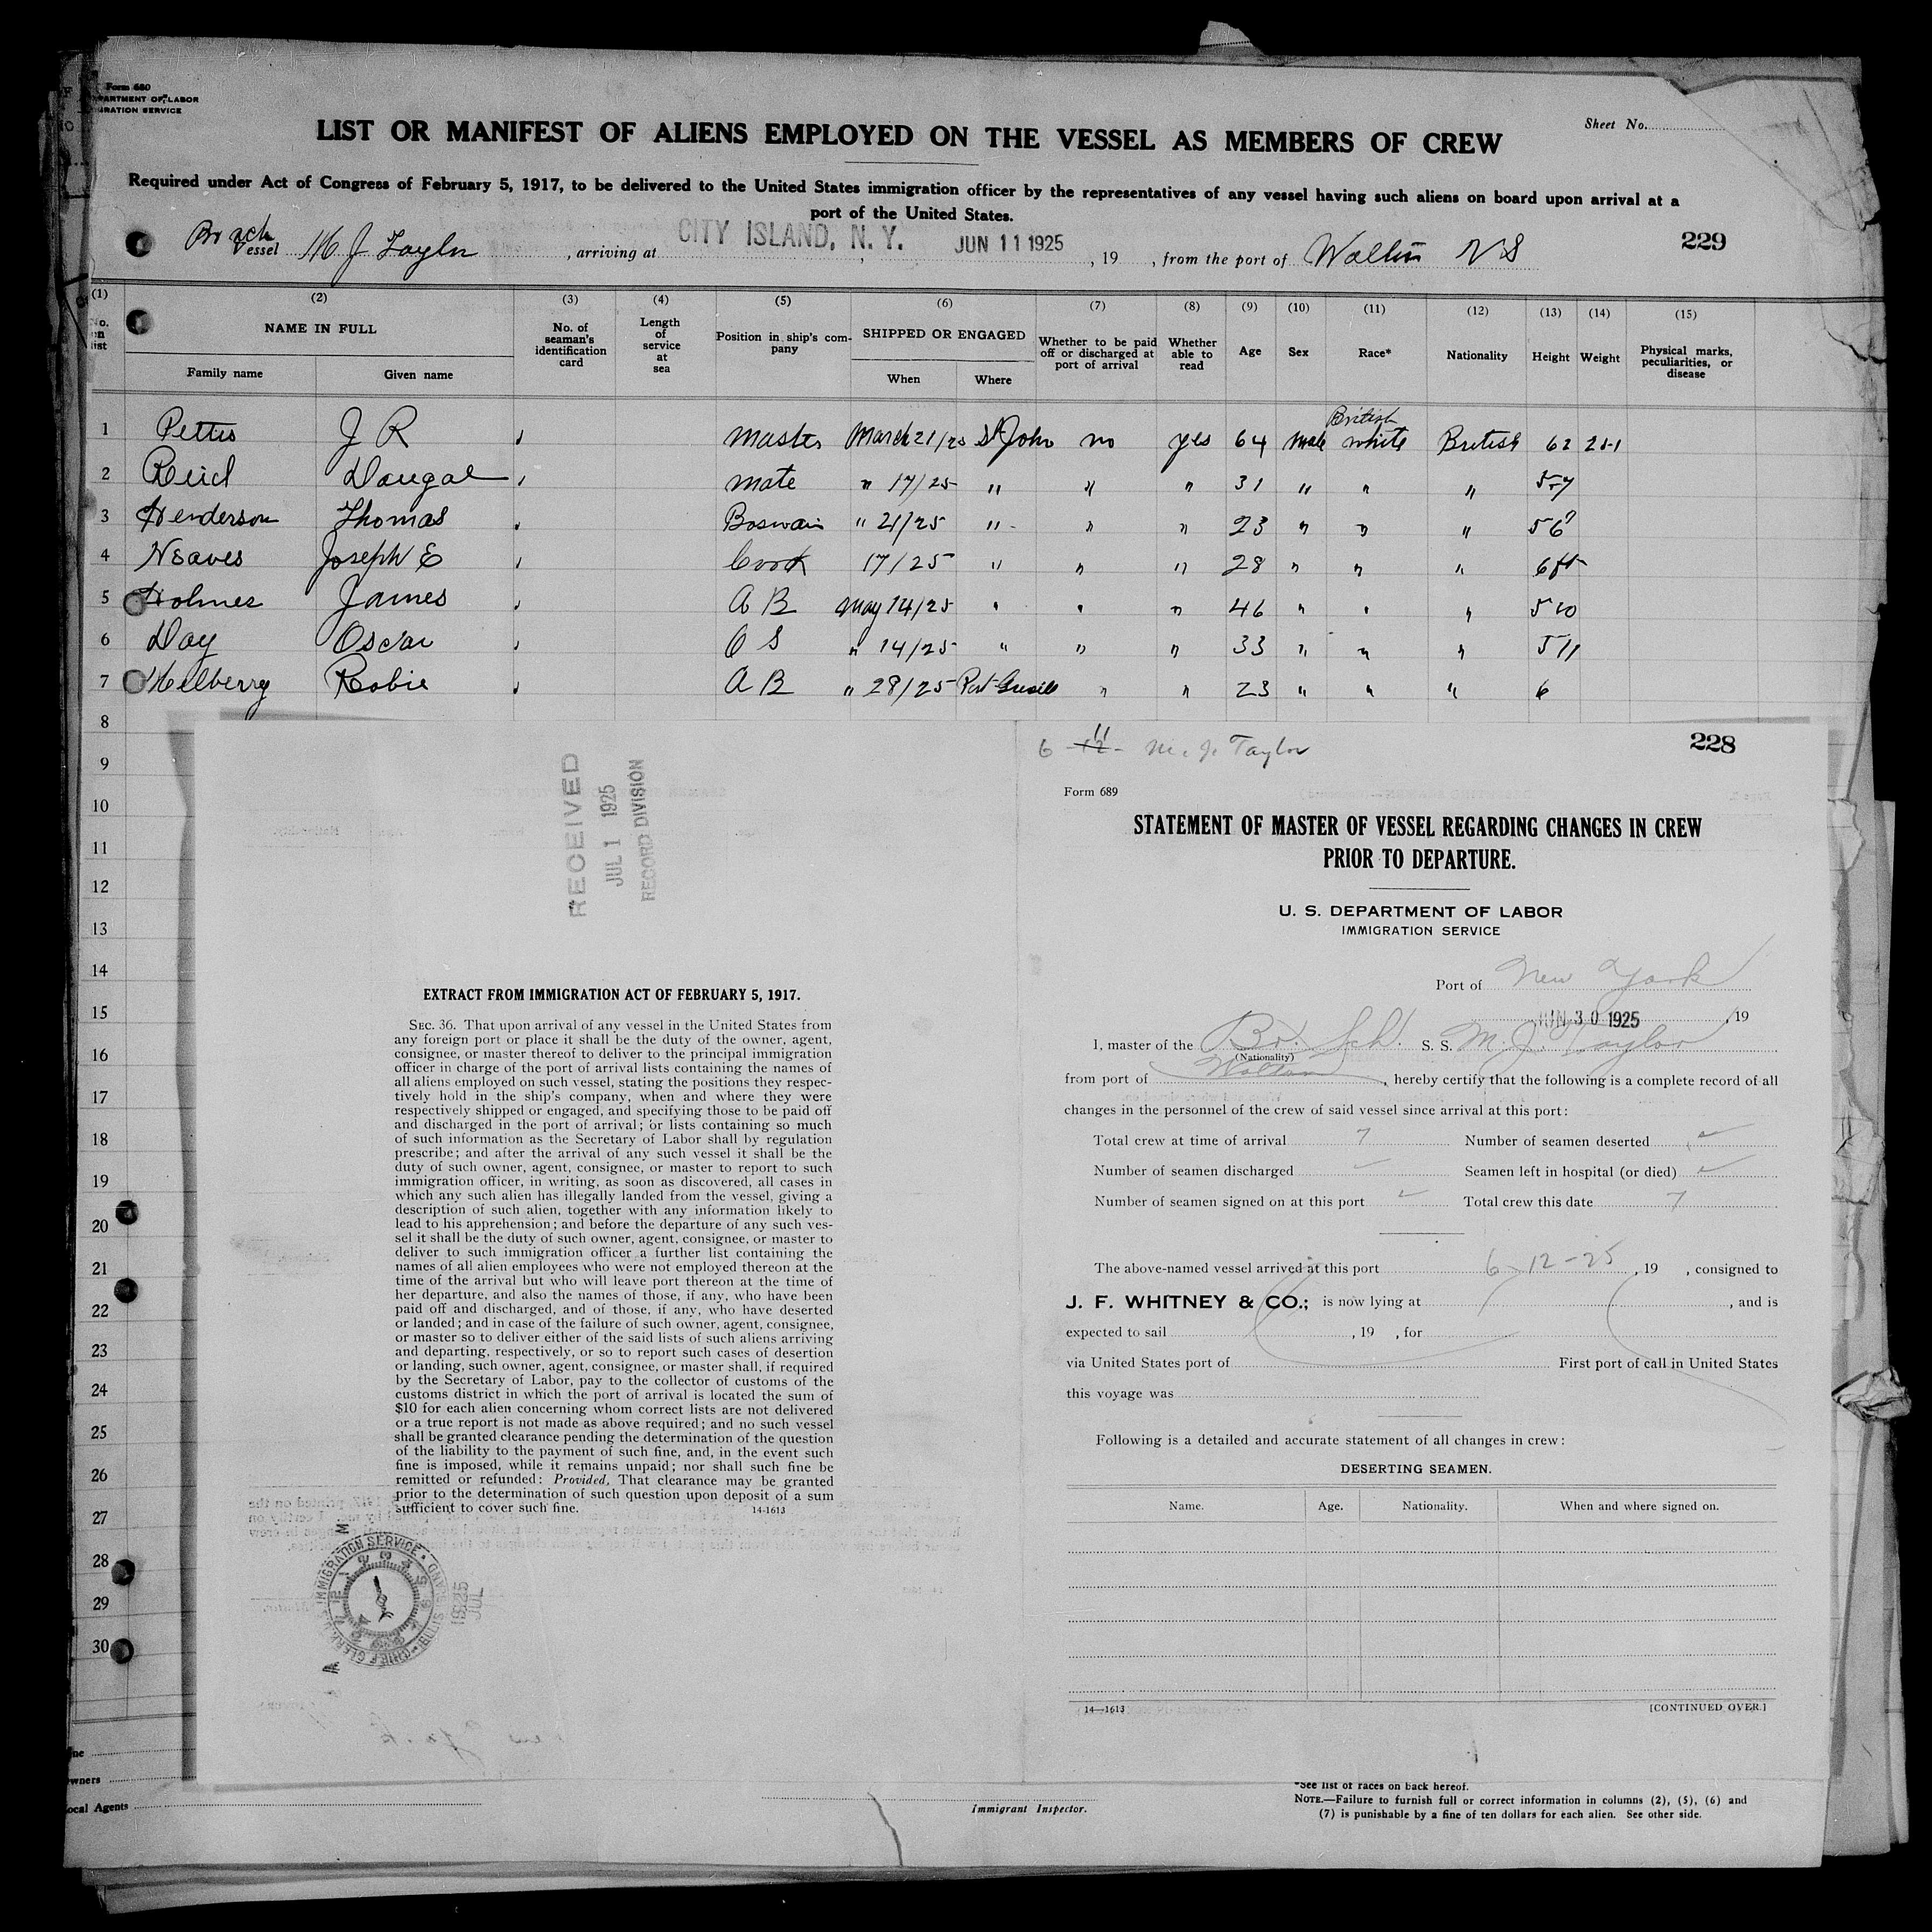 Form 680
LIST OR MANIFEST OF ALIENS EMPLOYED ON THE VESSEL AS MEMBERS OF CREW
Sheet No.
Required under Act of Congress of February 5, 1917, to be delivered to the United States immigration officer by the representatives of any vessel having such aliens on board upon arrival at a
port of the United States.
Vessel M J Taylor, arriving at CITY ISLAND, N. Y. JUN 11 1925, 19 , from the port of Walton N S
229
(1) (2) (3) (4) (5) (6) (7) (8) (9) (10) (11) (12) (13) (14) (15)
NAME IN FULL
Family name Given name
No. of seaman's identification card
Length of service at sea
Position in ship's company
SHIPPED OR ENGAGED
When Where
Whether to be paid off or discharged at port of arrival
Whether able to read
Age Sex Race* Nationality Height Weight
Physical marks, peculiarities, or disease
British
1 Pettis J R Master March 21/25 St John no yes 64 Male white British 62 201
2 Reid Dougal mate " 17/25 " " " 31 " " " 5-7
3 Henderson Thomas Boswain " 21/25 " " " 23 " " " 5 6
4 Neaves Joseph E Cook 17/25 " " " 28 " " " 6 ft
5 Holmes James A B May 14/25 " " " 46 " " " 5 10
6 Day Oscar O S " 14/25 " " " 33 " " " 5 11
7 Melberry Robie A B " 28/25 Port " " 23 " " " 6
8
9
10
11
12
13
14
15
16
17
18
19
20
21
22
23
24
25
26
27
28
29
30
RECEIVED
JUL 1 1925
RECORD DIVISION
EXTRACT FROM IMMIGRATION ACT OF FEBRUARY 5, 1917.
SEC. 36. That upon arrival of any vessel in the United States from
any foreign port or place it shall be the duty of the owner, agent,
consignee, or master thereof to deliver to the principal immigration
officer in charge of the port of arrival lists containing the names of
all aliens employed on such vessel, stating the positions they respec-
tively hold in the ship's company, when and where they were
respectively shipped or engaged, and specifying those to be paid off
and discharged in the port of arrival; or lists containing so much
of such information as the Secretary of Labor shall by regulation
prescribe; and after the arrival of any such vessel it shall be the
duty of such owner, agent, consignee, or master to report to such
immigration officer, in writing, as soon as discovered, all cases in
which any such alien has illegally landed from the vessel, giving a
description of such alien, together with any information likely to
lead to his apprehension; and before the departure of any such ves-
sel it shall be the duty of such owner, agent, consignee, or master to
deliver to such immigration officer a further list containing the
names of all alien employees who were not employed thereon at the
time of the arrival but who will leave port thereon at the time of
her departure, and also the names of those, if any, who have been
paid off and discharged, and of those, if any, who have deserted
or landed; and in case of the failure of such owner, agent, consignee,
or master so to deliver either of the said lists of such aliens arriving
and departing, respectively, or so to report such cases of desertion
or landing, such owner, agent, consignee, or master shall, if required
by the Secretary of Labor, pay to the collector of customs of the
customs district in which the port of arrival is located the sum of
$10 for each alien concerning whom correct lists are not delivered
or a true report is not made as above required; and no such vessel
shall be granted clearance pending the determination of the question
of the liability to the payment of such fine, and, in the event such
fine is imposed, while it remains unpaid; nor shall such fine be
remitted or refunded: Provided, That clearance may be granted
prior to the determination of such question upon deposit of a sum
sufficient to cover such fine.
14-1613
6 - 11 - M. J. Taylor
228
Form 689
STATEMENT OF MASTER OF VESSEL REGARDING CHANGES IN CREW
PRIOR TO DEPARTURE.
U. S. DEPARTMENT OF LABOR
IMMIGRATION SERVICE
Port of New York
JUN 30 1925, 19
I, master of the Br. Sch. S. S. M. J. Taylor
(Nationality)
from port of Walton, hereby certify that the following is a complete record of all
changes in the personnel of the crew of said vessel since arrival at this port:
Total crew at time of arrival 7 Number of seamen deserted
Number of seamen discharged Seamen left in hospital (or died)
Number of seamen signed on at this port Total crew this date 7
The above-named vessel arrived at this port 6-12-25, 19 , consigned to
J. F. WHITNEY & CO.; is now lying at , and is
expected to sail , 19 , for
via United States port of First port of call in United States
this voyage was
Following is a detailed and accurate statement of all changes in crew:
DESERTING SEAMEN.
Name. Age. Nationality. When and where signed on.
14—1613
[CONTINUED OVER.]
Immigrant Inspector.
*See list of races on back hereof.
NOTE.—Failure to furnish full or correct information in columns (2), (5), (6) and
(7) is punishable by a fine of ten dollars for each alien. See other side.